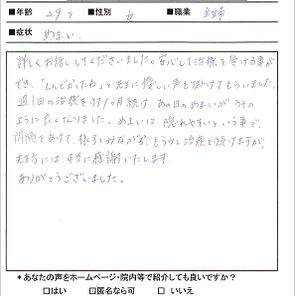 ■年齢 29才 ■性別 女 ■職業 主婦
■症状 めまい
詳しくお話ししてくださいました。安心して治療を受ける事が
でき、「しんどかったね」と先生に優しい声も掛けてもらいました。
週1回の治療を約1ヶ月続け、あの日のめまいがうその
ように良くなりました。めまいは、隠れやすいという事で、
間隔をあけて、様子をみながら、もう少し治療を続けますが、
先生方には、本当に感謝いたします。
ありがとうございました。
*あなたの声をホームページ・院内等で紹介しても良いですか?
□はい □匿名なら可 □いいえ